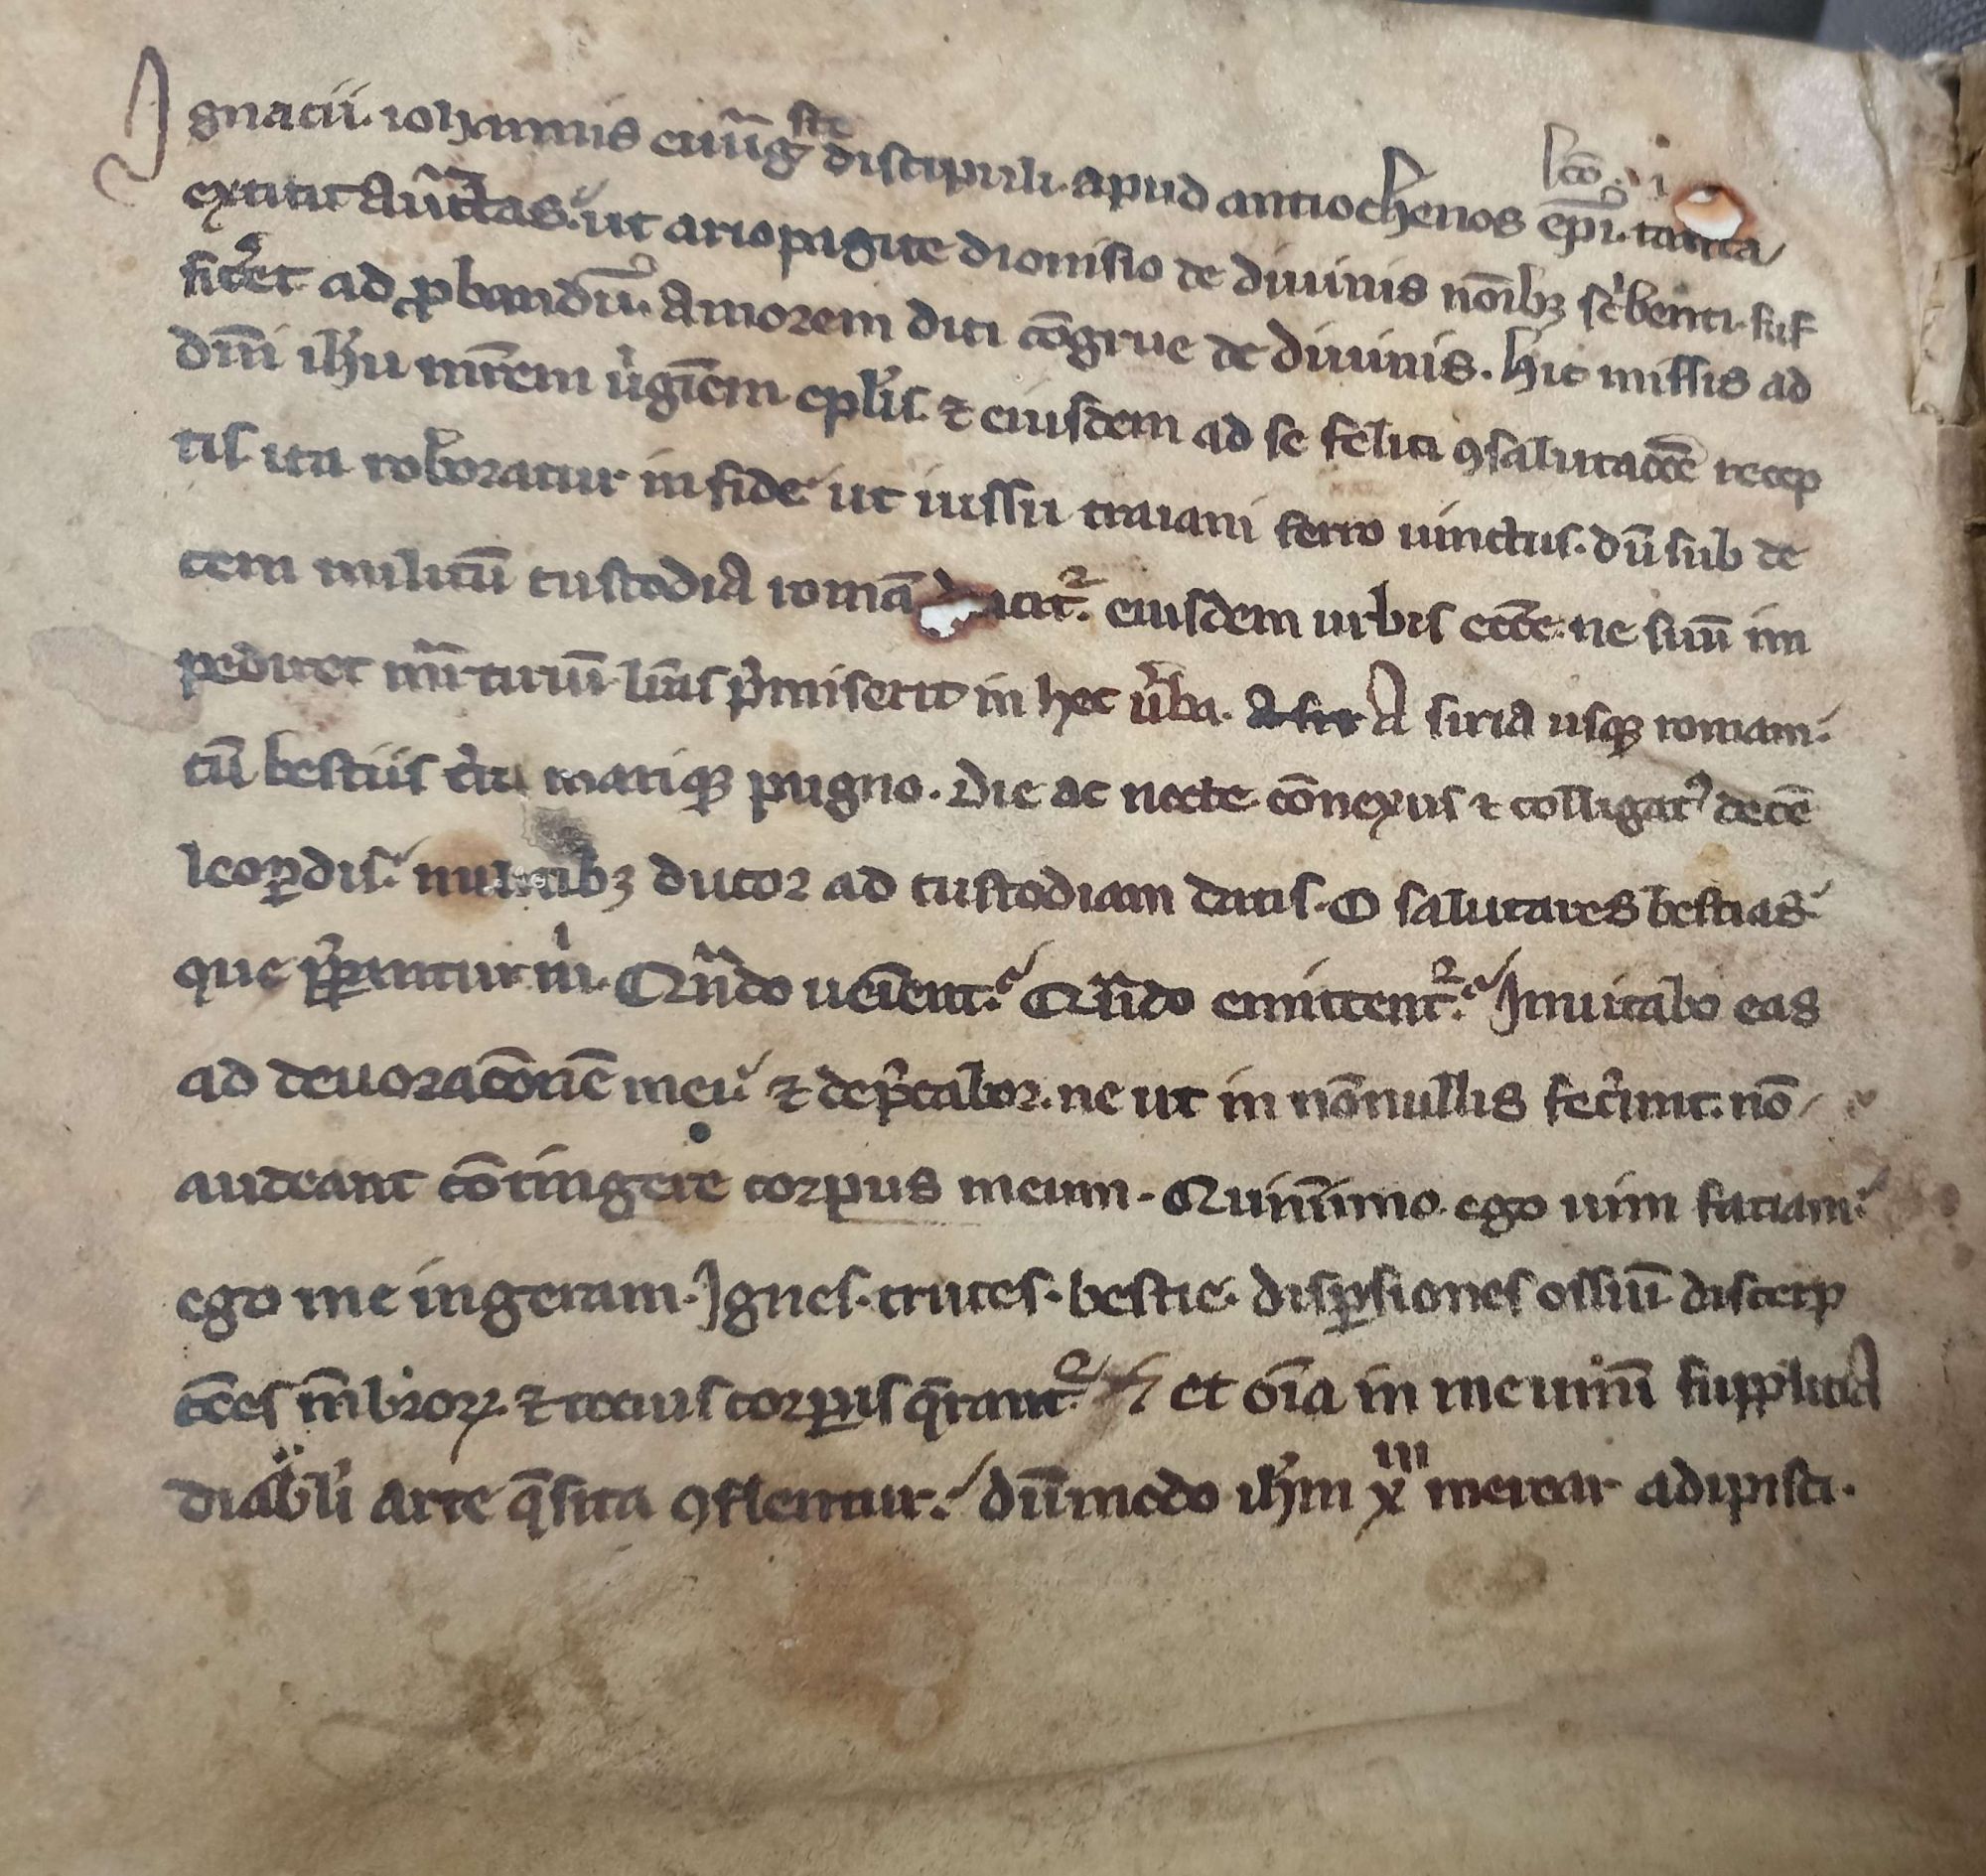 lc̄o vi
Ignacii. iohannis euuāg ste discipuli. apud antiochenos ep̄i. tanta
extitit auctᷓitas. ut ariopagite dionisio de diuinis noīb; sc̍benti. suf
ficeret ad ꝓbandū. amorem dici cōgrue de diuinis. hic missis ad
dn̄i ih̄u mr̄em u̍ginem ep̄lis. ⁊ eiusdem ad se felici ꝯsalutac̄c̄e recep
tis ita roboratur in fide ut iussu traiani ferro uinctus. dū sub de
cem militū custodia romā ducit᷑. eiusdem urbis ecc̄e. ne suū im
pediret mr̄tirium lr̄as p̍miserit in hec u̍ba. A siria usq; romam.
cū bestiis t̍ra mariq; pugno. Die ac nocte cōnexus ⁊ colligatꝰ decē
leoꝑdis. militib; ducor ad custodiam datis. O salutares bestias
que p̍ꝑantur m̍. Qn̄do ueīent. Qn̄do emittent᷑. Inuitabo eas
ad deuoracōnē meā. ⁊ dep̄cabor. ne ut in nōnullis fec̍unt. nō
audeant cōtingere corpus meum. Quinīmo. ego uim faciam.
ego me ingeram. Ignes. cruces. bestie. disꝑsiones ossiū discerp
cc̄es m̄broꝝ. ⁊ tocius corꝑis q̄rant᷑ et oīa in me unū supplicia
diaboli arte q̄sita ꝯflentur. dūmodo ih̄m x̄m merear adipisci.